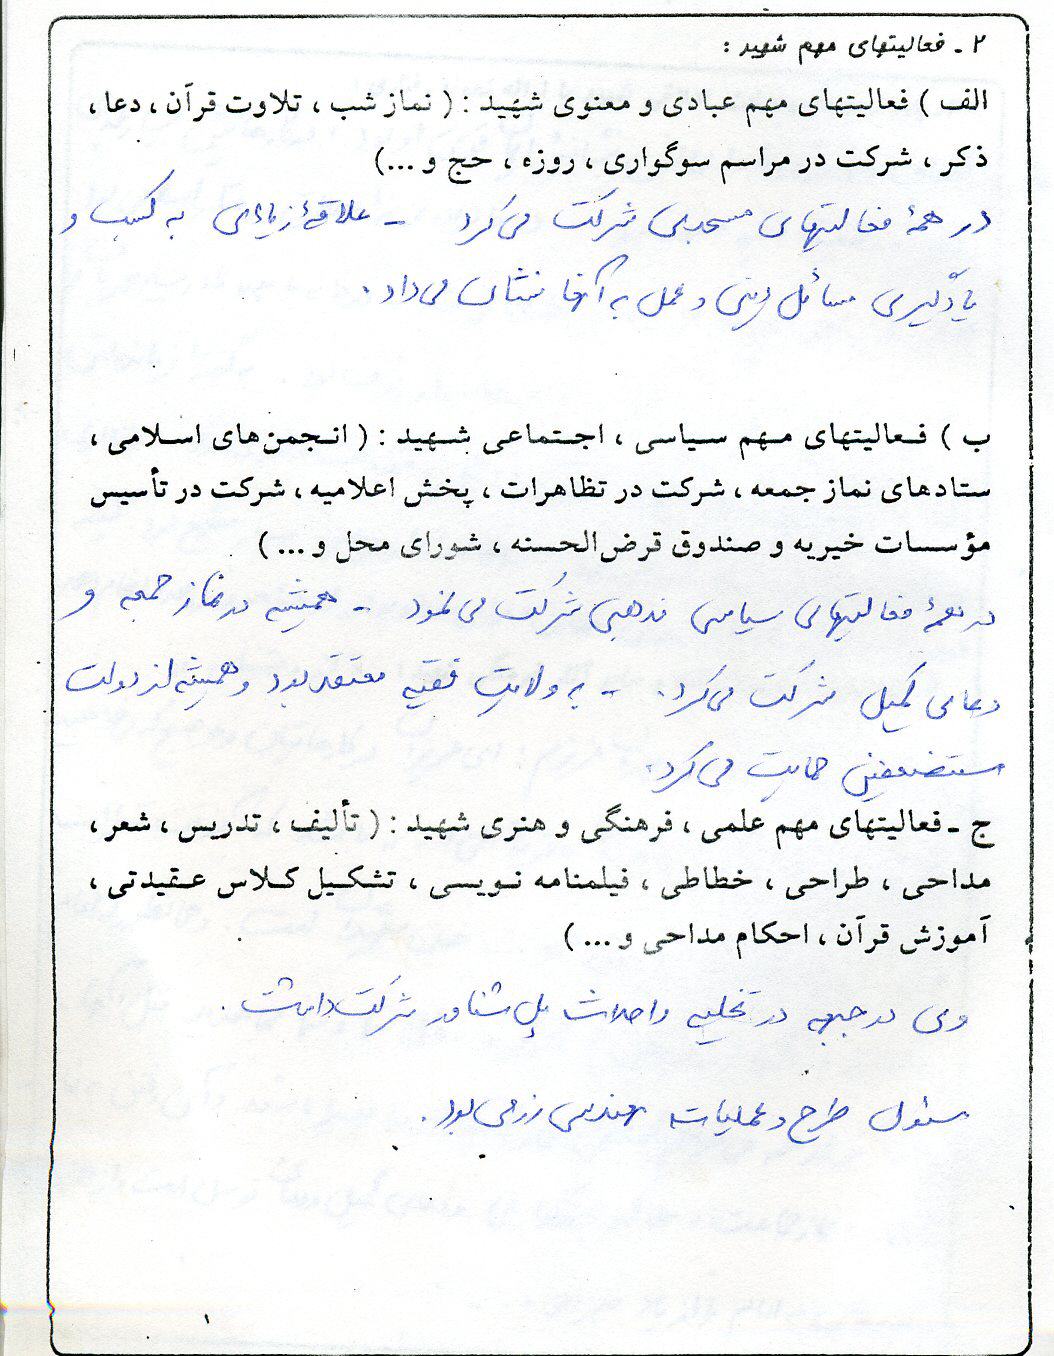 ۲ - فعالیتهای مهم شهید :
الف ) فعالیتهای مهم عبادی و معنوی شهید : ( نماز شب ، تلاوت قرآن ، دعا ،
ذکر ، شرکت در مراسم سوگواری ، روزه ، حج و ...)
در همهٔ فعالیتهای مسجد شرکت می‌کرد - علاقهٔ زیادی به کسب و
یادگیری مسائل دینی و عمل به آنها نشان می‌داد .
ب ) فعالیتهای مهم سیاسی ، اجتماعی شهید : ( انجمن‌های اسلامی ،
ستادهای نماز جمعه ، شرکت در تظاهرات ، پخش اعلامیه ، شرکت در تأسیس
مؤسسات خیریه و صندوق قرض‌الحسنه ، شورای محل و ... )
در همهٔ فعالیتهای سیاسی مذهبی شرکت می نمود - همیشه در نماز جمعه و
دعای کمیل شرکت می‌کرد . - به ولایت فقیه معتقد بود و همیشه از دولت
مستضعفین حمایت می‌کرد .
ج - فعالیتهای مهم علمی ، فرهنگی و هنری شهید : ( تألیف ، تدریس ، شعر ،
مداحی ، طراحی ، خطاطی ، فیلمنامه نویسی ، تشکیل کلاس عقیدتی ،
آموزش قرآن ، احکام مداحی و ... )
وی در جبهه در تخلیه و احداث پل شناور شرکت داشت .
مسئول طرح و عملیات مهندسی رزمی بود .
۱